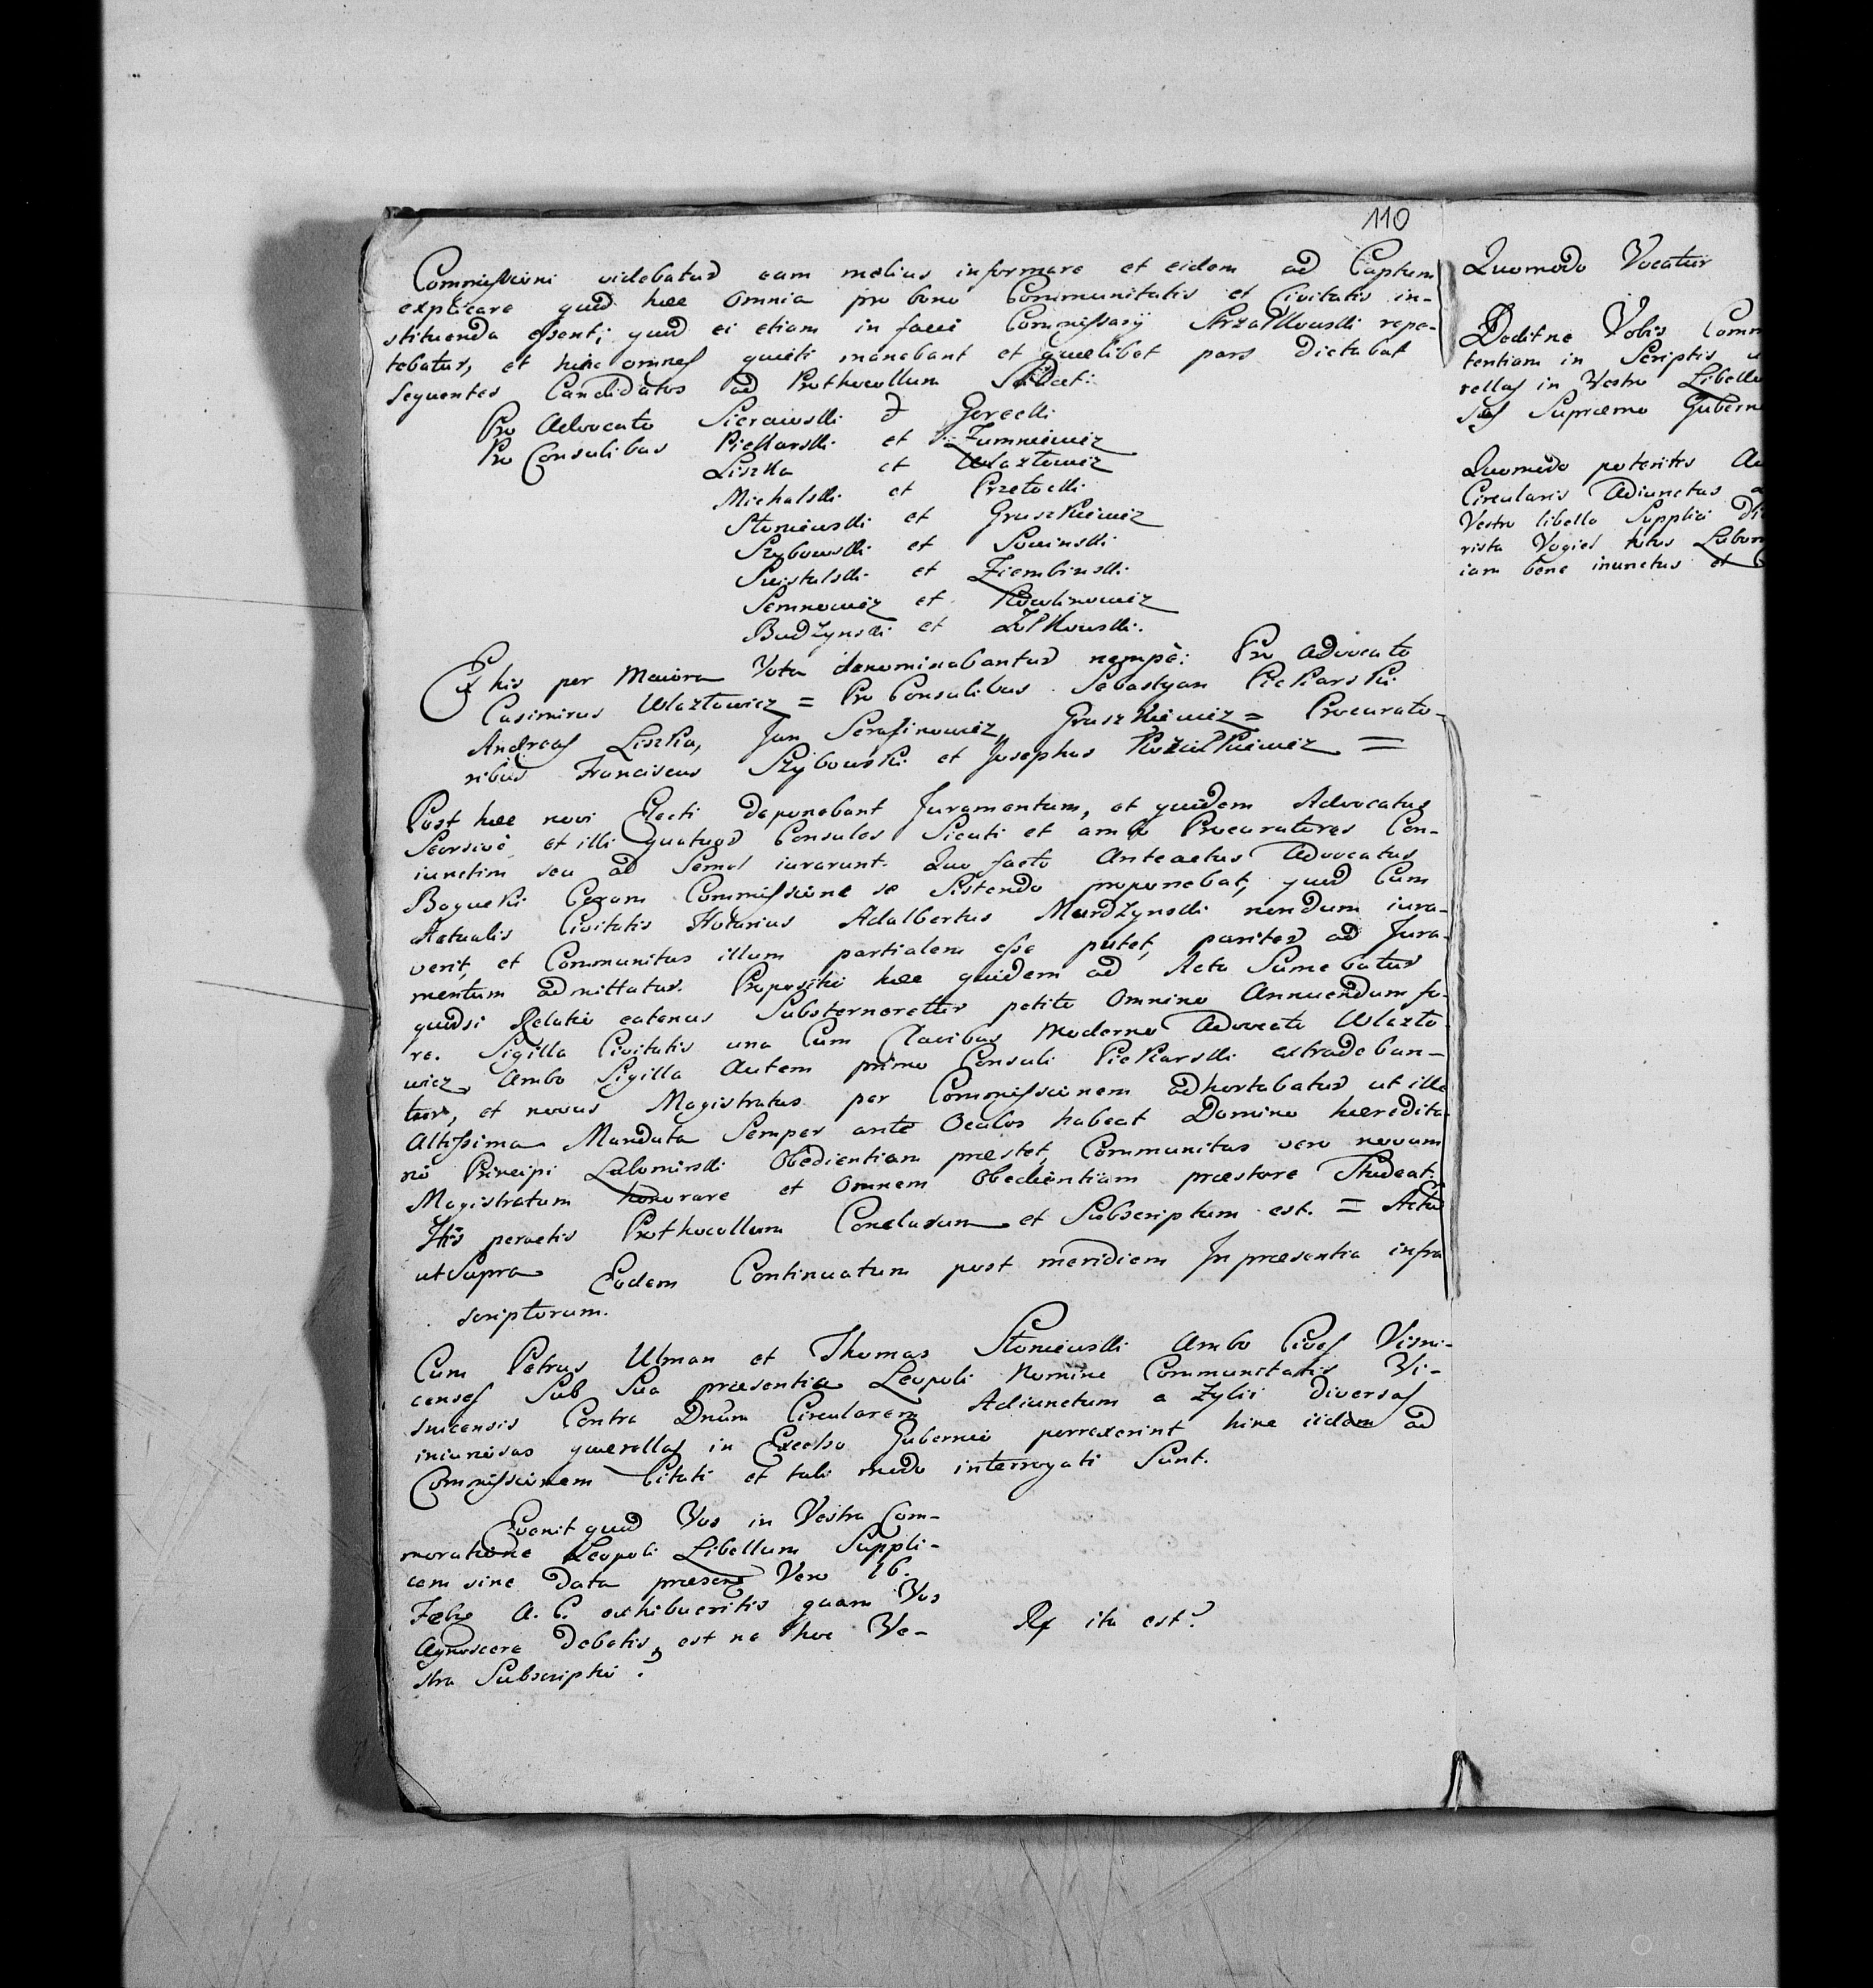 110
Commissioni videbatur eam melius informare et eidem ad Captum
explicare quod hæc omnia pro bono Communitatis et Civitatis in-
stituenda essent; quod ei etiam in facie Commissarij Strzałkowski repe-
tebatur, et hinc omnes quieti manebant et quælibet pars dictabat
sequentes Candidatos ad Prothocollum
Pro Advocato Sierawski et Gorecki
Pro Consulibus Piekarski et
Liszka et Wlazłowicz
Michalski et
Słoniewski et Gruszkiewicz
Szybowski et Sowinski
et Ziembinski
et
Budzynski et Zołkowski.
Ex his per Maiora Vota denominabantur nempè: Pro Advocato
Casimirus Wlazłowicz = Pro Consulibus Sebastyan Piekarski
Andreas Liszka, Jan Serafinowicz, Gruszkiewicz = Procurato-
ribus Franciscus Szybowski et Josephus =
Post hæc novi Electi deponebant Juramentum, et quidem Advocatus
Seorsivè et illi quatuor Consules Sicuti et ambo Procuratores Con-
iunctim seu ad Semel iurarunt. Quo facto Anteactus Advocatus
Coram Commissione se Sistendo proponebat, quod Cum
Actualis Civitatis Notarius Adalbertus Murdzynski nondum iura-
verit, et Communitas illum partialem esse putet, pariter ad Jura-
mentum admittatur. Propositio hæc quidem ad Acta Sumebatur
quodsi Relatio eatenus Substerneretur petito Omnino Annuendum fo-
re. Sigilla Civitatis una Cum Clavibus Moderno Advocato Wlazło-
wicz, Ambo Sigilla Autem primo Consuli Piekarski extradeban-
tur, et novus Magistratus per Commissionem adhortabatur ut illa
Altissima Mandata Semper ante Oculos habeat Domino hæredita-
rio Principi Lubomirski Obedientiam præstet, Communitas vero novum
Magistratum honorare et Omnem Obedientiam præstare Studeat.
His peractis Prothocollum Conclusum et Subscriptum est. = Actum
ut Supra Eodem Continuatum post meridiem In præsentia infra
scriptorum.
Cum Petrus Ulman et Thomas Słoniewski Ambo Cives Visni-
censes Sub Sua præsentia Leopoli Nomine Communitatis Vi-
snicensis Contra Dnūm Circularem Adiunctum a Zylii diversas
iniuriosas querellas in Excelso Gubernio porrexerint hinc iidem ad
Commissionem Citati et tali modo interrogati Sunt.
Evenit quod Vos in Vestra Com-
moratione Leopoli Libellum Suppli-
cem sine Data præsent Vero 16.
Febr A. C. exhibueritis quam Vos
Agnoscere debetis, est ne hoc Ve-
stra Subscriptio?
Rx ita est?
Quomodo Vocatur
Deditne Vobis Comm
tentiam in Scriptis
rellas in Vestro Libello
Supremo Gubern
Quomodo poteritis
Circularis Adiunctus
Vestro libello Supplici
rista totus
iam bene inunctus et